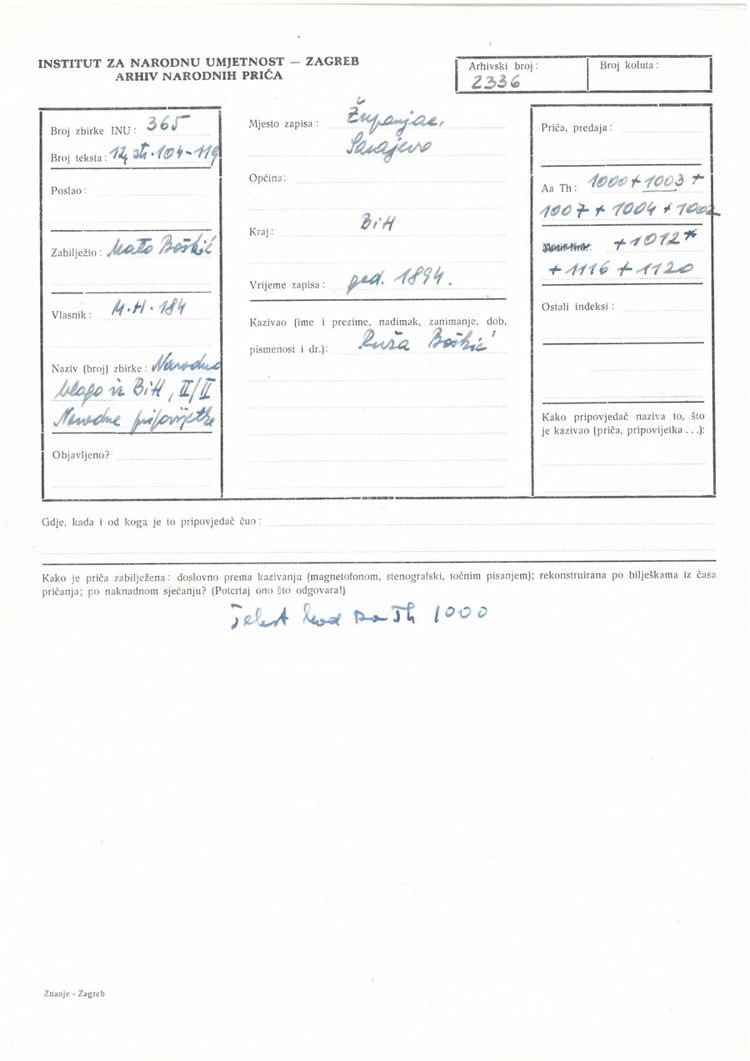 INSTITUT ZA NARODNU UMJETNOST — ZAGREB
ARHIV NARODNIH PRIČA
Arhivski broj:
2336
Broj koluta:
Broj zbirke INU: 365
Broj teksta: 12, str. 104-119
Poslao:
Zabilježio: Mato Boškić
Vlasnik: M.H. 184
Naziv (broj) zbirke: Narodno
blago iz BiH, II/II
Narodne pripovijetke
Objavljeno?
Mjesto zapisa: Županjac,
Sarajevo
Općina:
Kraj: BiH
Vrijeme zapisa: god. 1894.
Kazivao (ime i prezime, nadimak, zanimanje, dob,
pismenost i dr.): Ruža Boškić
Priča, predaja:
Aa Th: 1000 + 1003 +
1007 + 1004 + 1002
+ 1012*
+ 1116 + 1120
Ostali indeksi:
Kako pripovjedač naziva to, što
je kazivao (priča, pripovijetka ...):
Gdje, kada i od koga je to pripovjedač čuo:
Kako je priča zabilježena: doslovno prema kazivanju (magnetofonom, stenografski, točnim pisanjem); rekonstruirana po bilješkama iz časa
pričanja; po naknadnom sjećanju? (Potcrtaj ono što odgovara!)
Tekst kod Aa Th 1000
Znanje - Zagreb